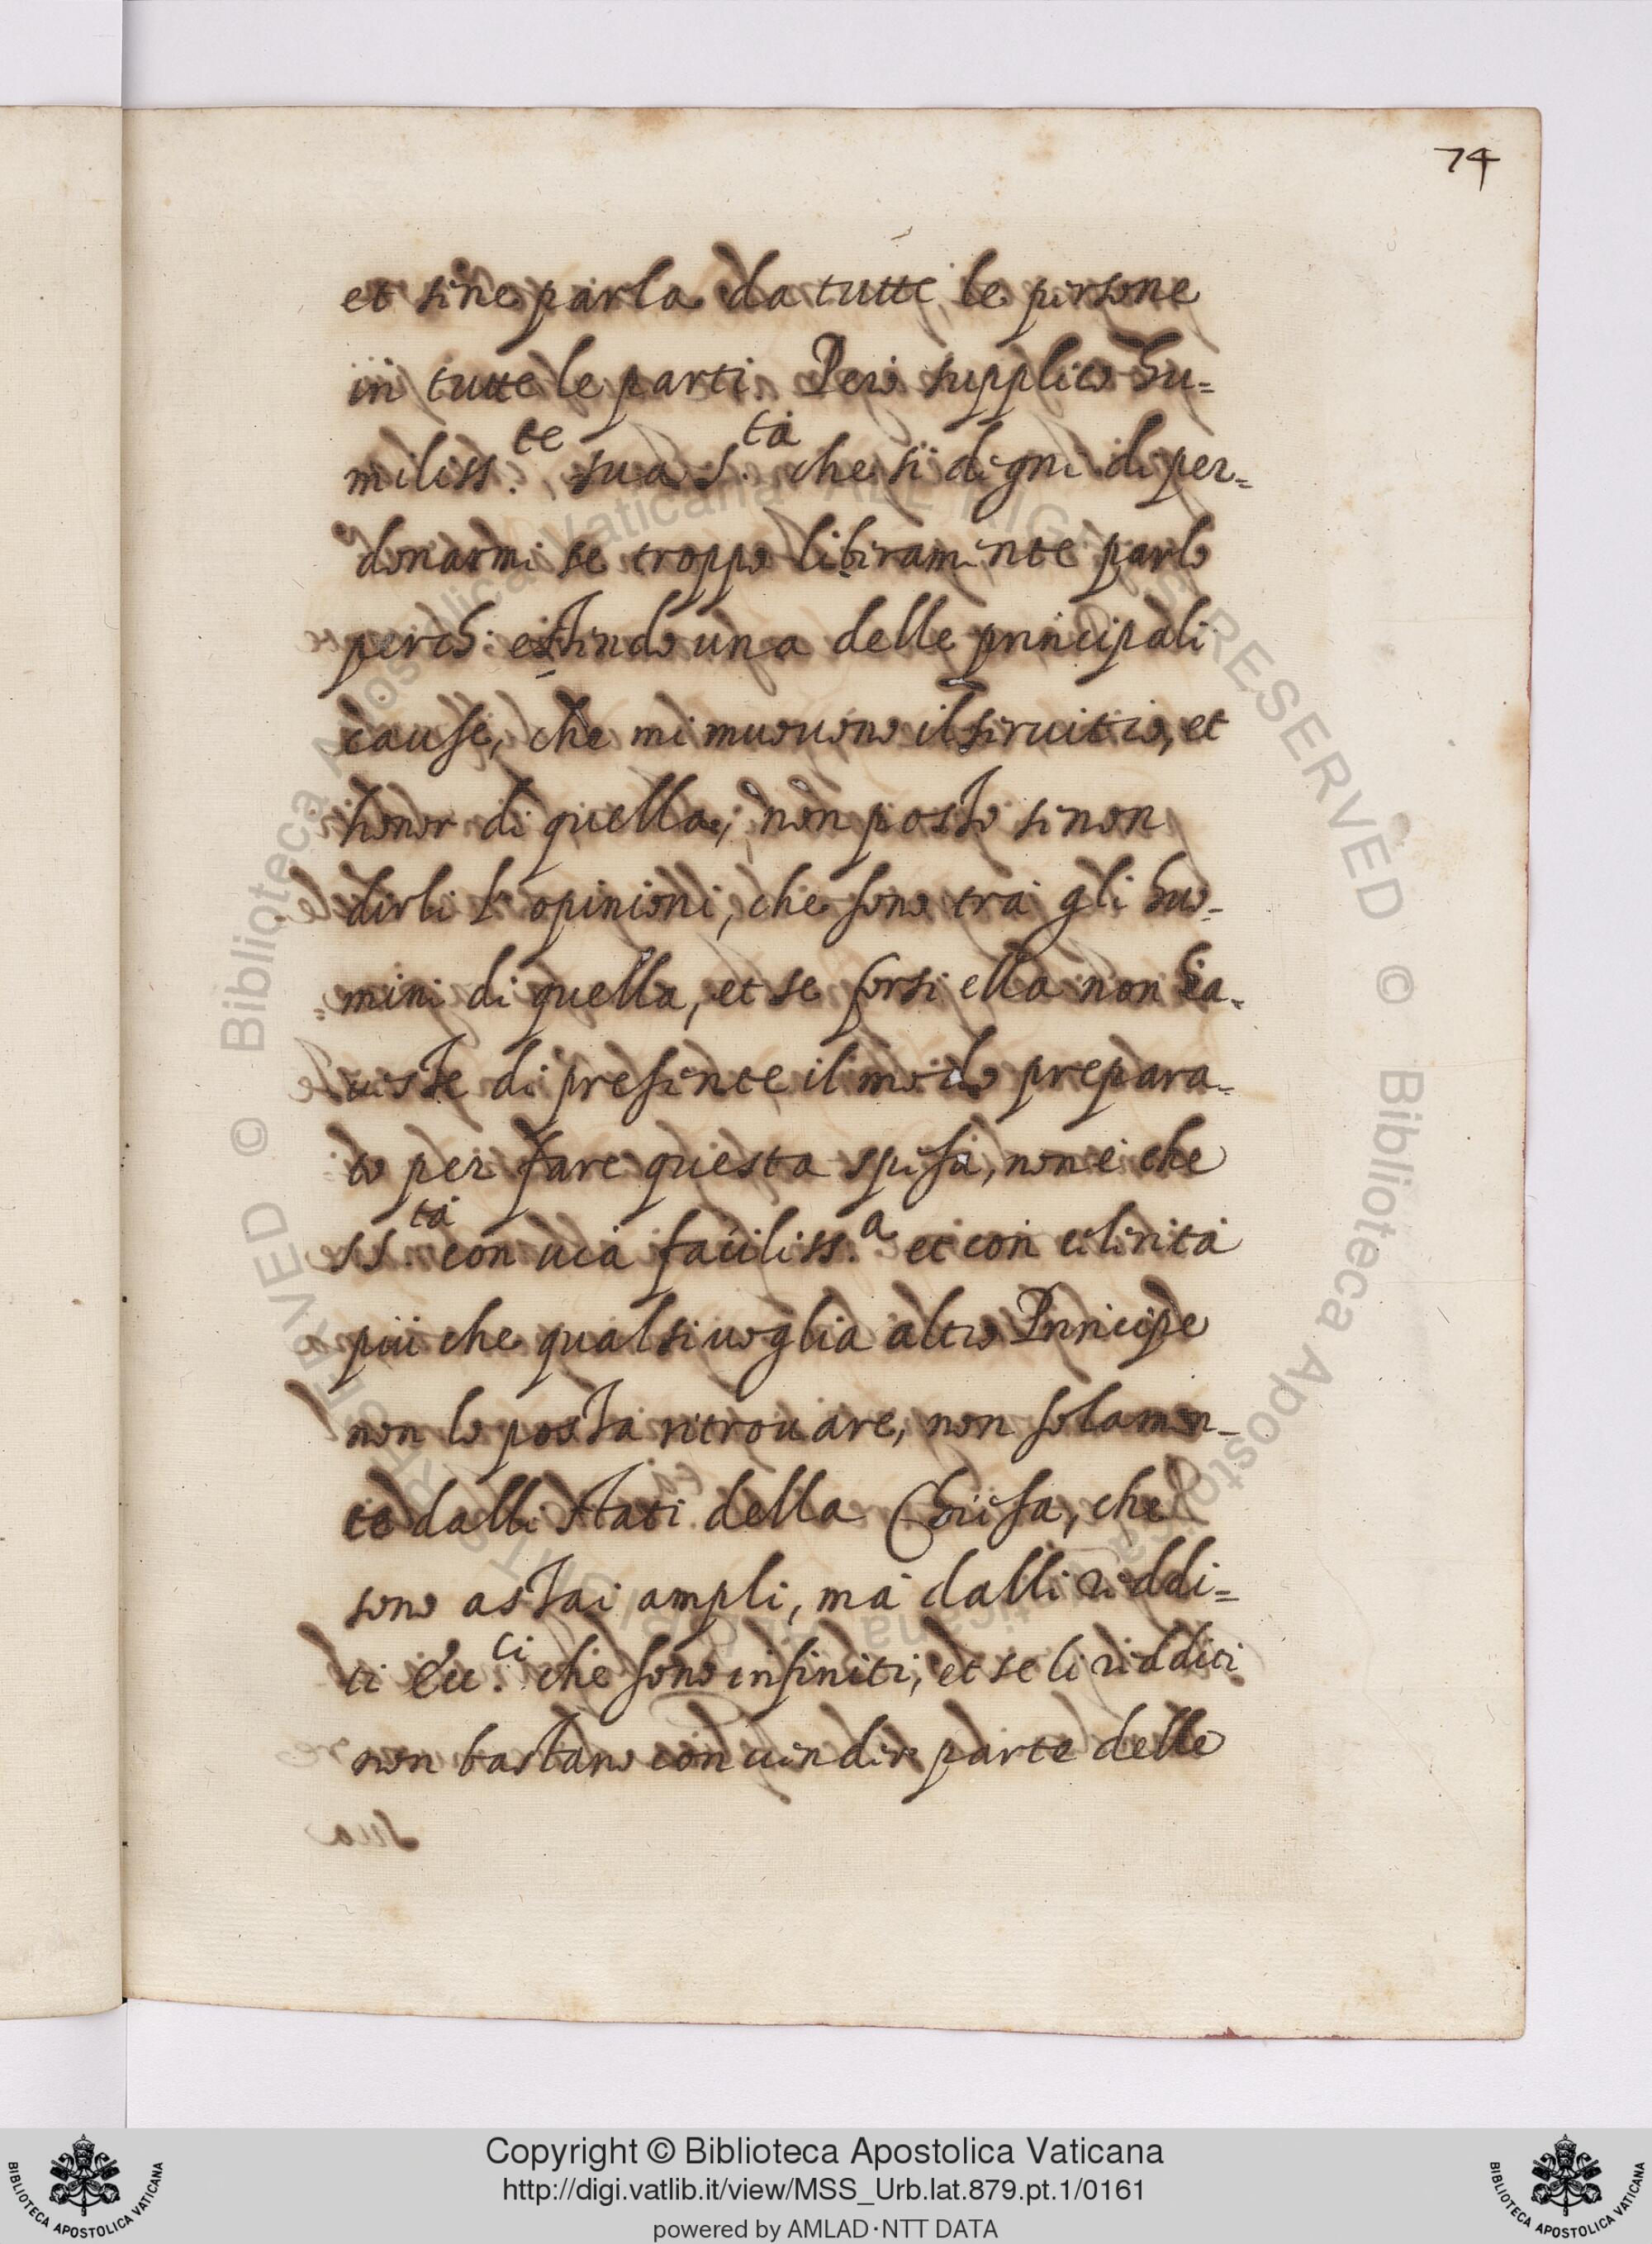 74
et si ne parla da tutte le persone
in tutte le parti. Però supplico hu=
miliss.te sua S.tà che si degni di per=
donarmi se troppo liberamente parlo
perch: essendo una delle principali
cause, che mi muovono il servitio, et
honor di quella; non posso se non
dirli l'opinioni, che sono tra gli huo=
mini di quella, et se forsi ella non ha=
vesse di presente il modo prepara=
to per fare questa spesa, non è che
S S.tà con via faciliss.a et con celerità
più che qualsivoglia altro Principe
non lo possa ritrovare, non solamen=
te dalli stati della Chiesa, che
sono assai ampli, mà dalli reddi=
ti Ecc.ci che sono infiniti, et se li redditi
non bastano con vender parte delle
Copyright © Biblioteca Apostolica Vaticana
http://digi.vatlib.it/view/MSS_Urb.lat.879.pt.1/0161
powered by AMLAD·NTT DATA
BIBLIOTECA APOSTOLICA VATICANA
BIBLIOTECA APOSTOLICA VATICANA